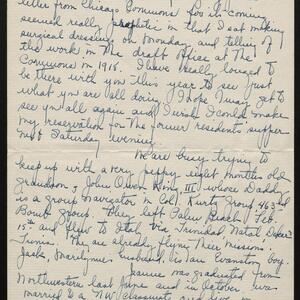 letter from Chicago Commons for its coming
seemed really prophetic in that I sat making
surgical dressings on Monday and telling of
the work in the draft office at the
Commons in 1918. I have really longed to
be there with you this year to see just
what you are all doing. I hope I may get to
see you all again and I wish I could make
my reservation for the former residents supper
next Saturday evening.
We are busy trying to
keep up with a very peppy eight months old
grandson, John Owen King III whose Daddy
is a group Navigator in Col. Kurtz group 463rd
Bomb Group. They left Palm Beach Feb.
15th and flew to Italy via Trinidad Natal Dakar
Tunis. They are already flying their missions.
Jack, Marilynn's husband, is an Evanston boy.
Jeanne was graduated from
Northwestern last June and in October was
married to a N.W. classmate and